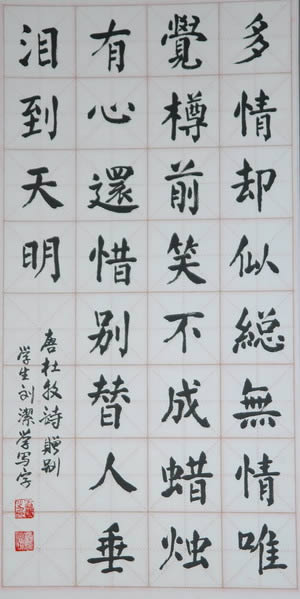 多情却似総無情唯
覺樽前笑不成蜡烛
有心還惜別替人垂
泪到天明
唐杜牧诗赠别
学生刘潔学写字